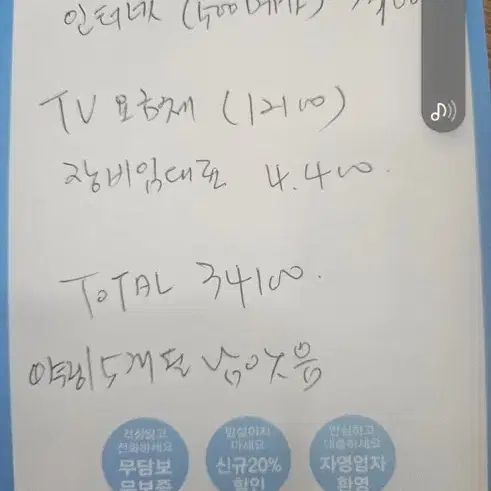 인터넷 (500메가)
TV 요금제 (12100)
장비임대료 4.400.
TOTAL 34100.
약정5개월 남아있음
걱정말고 전화하세요 무담보 무보증
망설이지 마세요 신규20% 할인
안심하고 대출하세요 자영업자 환영